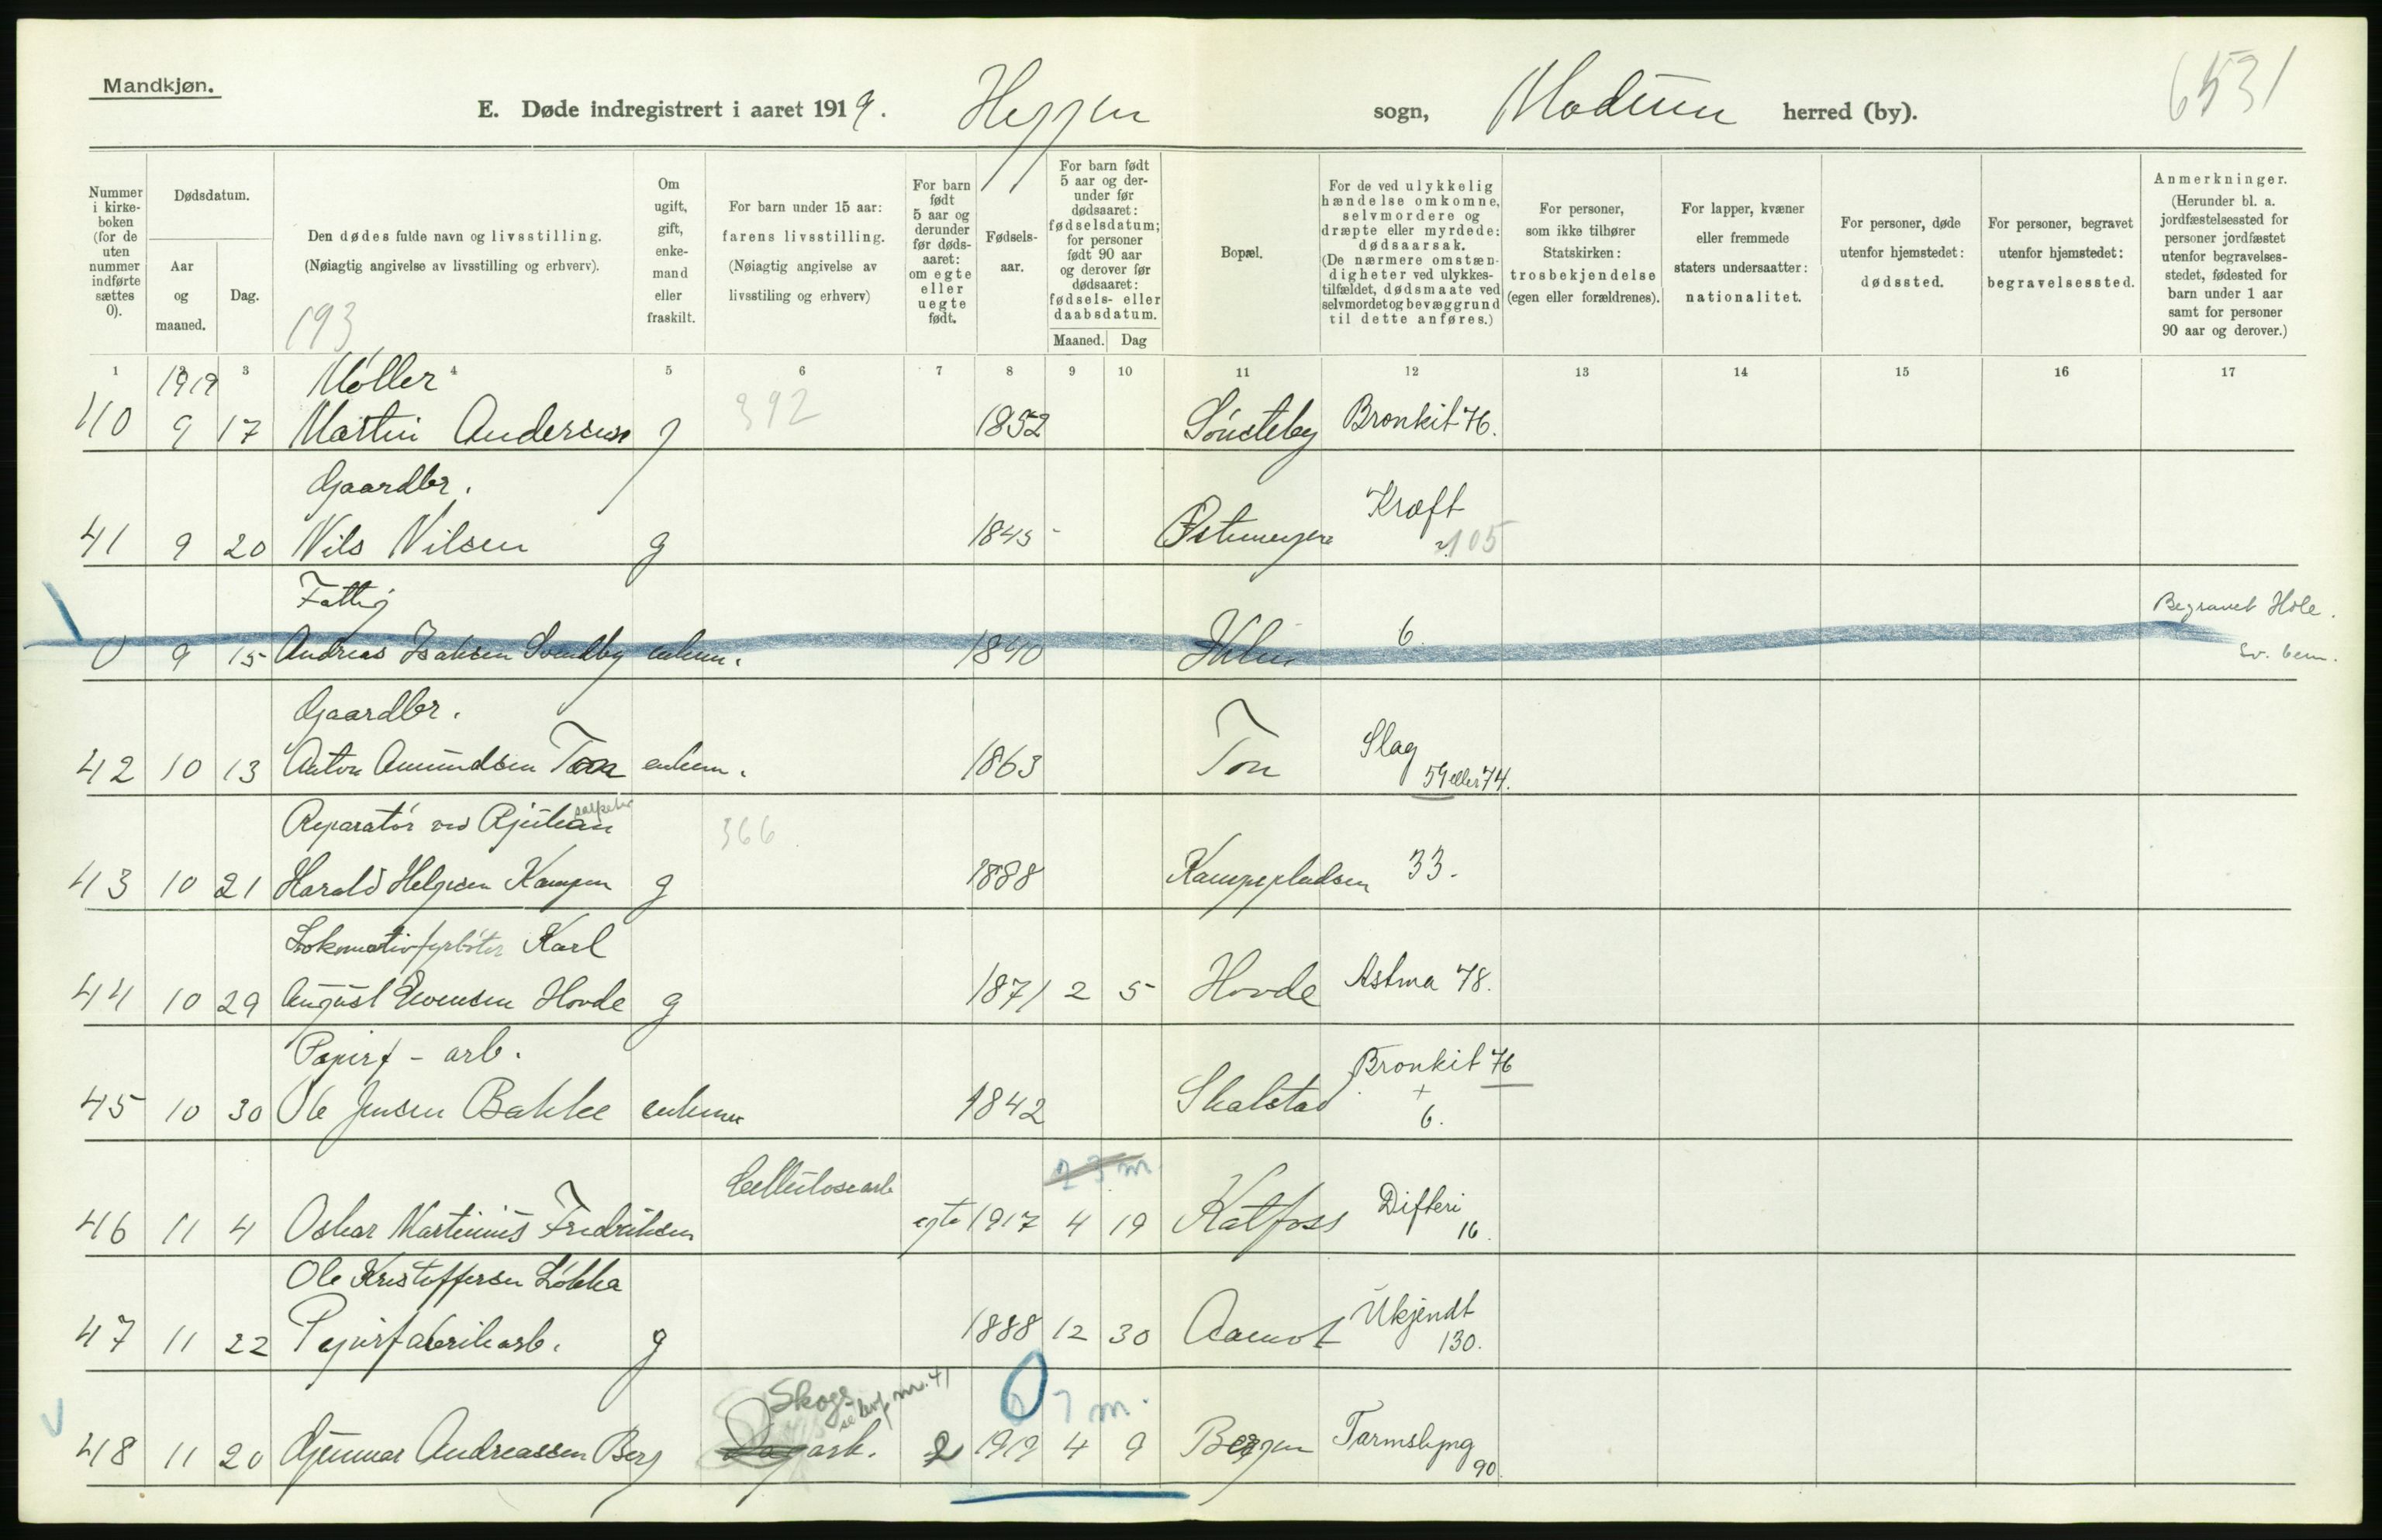 Mandkjøn.
E. Døde indregistrert i aaret 1919. Heggen sogn, Modum herred (by).
6531
Nummer i kirkeboken (for de uten nummer indførte sættes 0).
Dødsdatum.
Aar og maaned.
Dag.
Den dødes fulde navn og livsstilling.
(Nøiagtig angivelse av livsstilling og erhverv).
193
Om ugift, gift, enkemand eller fraskilt.
For barn under 15 aar: farens livsstilling.
(Nøiagtig angivelse av livsstiling og erhverv)
For barn født 5 aar og derunder før dødsaaret: om egte eller uegte født.
Fødselsaar.
For barn født 5 aar og derunder før dødsaaret: fødselsdatum; for personer født 90 aar og derover før dødsaaret: fødsels- eller daabsdatum.
Maaned. Dag
Bopæl.
For de ved ulykkelig hændelse omkomne, selvmordere og dræpte eller myrdede: dødsaarsak.
(De nærmere omstændigheter ved ulykkestilfældet, dødsmaate ved selvmordet og bevæggrund til dette anføres.)
For personer, som ikke tilhører Statskirken: trosbekjendelse (egen eller forældrenes).
For lapper, kvæner eller fremmede staters undersaatter: nationalitet.
For personer, døde utenfor hjemstedet: dødssted.
For personer, begravet utenfor hjemstedet: begravelsessted.
Anmerkninger.
(Herunder bl. a. jordfæstelsessted for personer jordfæstet utenfor begravelsesstedet, fødested for barn under 1 aar samt for personer 90 aar og derover.)
1 2 3 4 5 6 7 8 9 10 11 12 13 14 15 16 17
1919 Møller
40 9 17 Martin Andersen g 392 1852 Sønsteby Bronkit 76.
Gaardbr. Kræft
41 9 20 Nils Nilsen g 1845 105
Fattig Begravet Hole.
0 9 15 Andreas Isaksen Svendby enkem. 1840 6.
Gaardbr. Slag
42 10 13 Anton Amundsen Ton enkem. 1863 Ton 59 eller 74.
Reparatør ved Rjukan salpeter 366
43 10 21 Harald Helgesen Kampen g 1888 Kampepladsen 33.
Lokomotivfyrbøter Karl
44 10 29 August Evensen Hovde g 1871 2 5 Hovde Astma 78.
Papirf - arb. Bronkit 76
45 10 30 Ole Jensen Bakke enkem 1842 Skalstad + 6.
Cellulosearb 2 3 m Difteri
46 11 4 Oskar Martinius Fredriksen egte 1917 4 19 Katfoss 16.
Ole Kristoffersen Løkka Ukjendt
47 11 22 Papirfabrikarb. g 1888 12 30 Aamot 130.
Skogs se levf nr. 41 0 7 m.
48 11 20 Gunnar Andreassen Berg Dagarb. 2 1919 4 9 Tarmslyng 90.